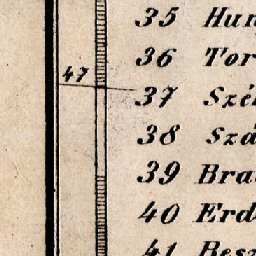 35 Hun
36 Tor
47
37 Szé
38 Szá
39 Bra
40 Erd
41 Besz